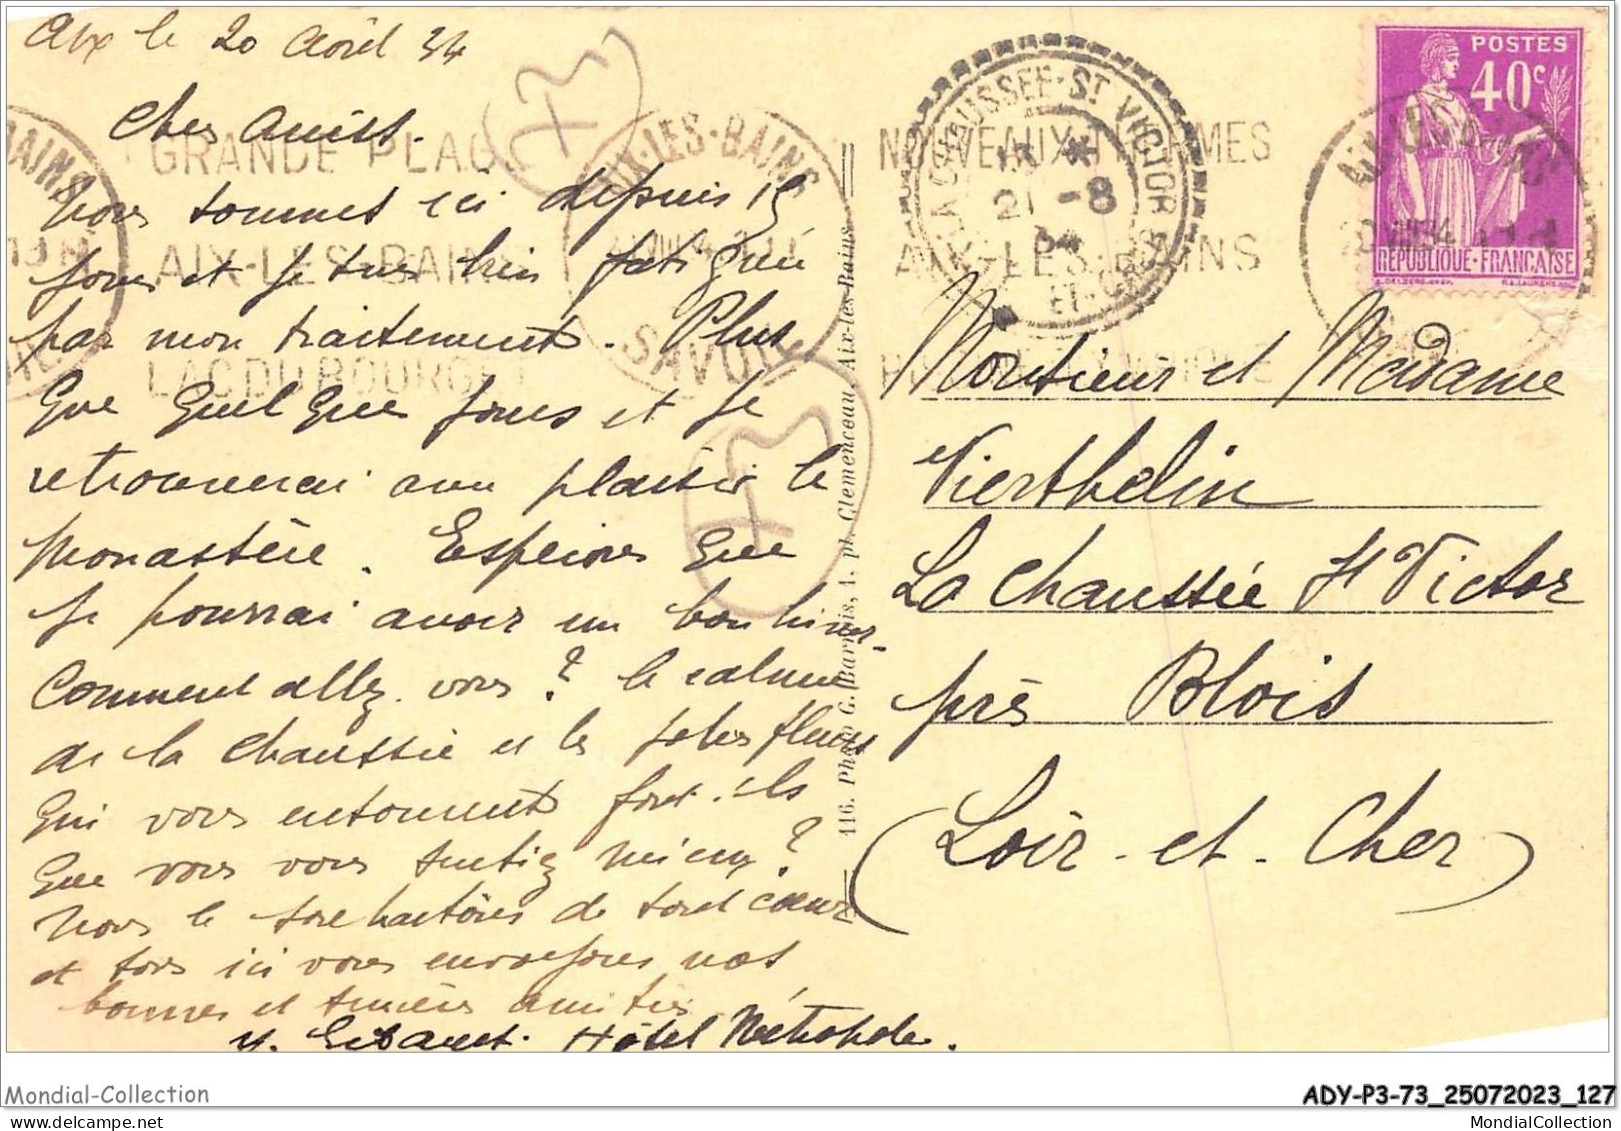 Aix le 20 Août 34
Chers Amies.
Nous sommes ici depuis 15
jours et je suis bien fatiguée
par mon traitement. Plus
que quelques jours et je
retrouverai avec plaisir le
Monastère. Espérons que
je pourrai avoir un bon hiver
Comment allez vous ? le calme
de la Chaussée et les jolies fleurs
qui vous entourent font-ils
que vous vous sentiez mieux ?
Nous le souhaitons de tout cœur
et tous ici vous envoyons nos
bonnes et sincères amitiés
Hôtel Métropole.
GRANDE PLAGE
AIX-LES-BAINS
LAC DU BOURGET
AIX-LES-BAINS
SAVOIE
116. Photo G. Barnis, 1, pl. Clemenceau, Aix-les-Bains
LA CHAUSSEE-ST VICTOR
21 -8
34
NOUVEAUX THERMES
AIX-LES-BAINS
POSTES
40c
REPUBLIQUE-FRANÇAISE
Monsieur et Madame
Vierthelin
La Chaussée St Victor
près Blois
(Loir-et-Cher)
Mondial-Collection
ADY-P3-73_25072023_127
MondialCollection.com